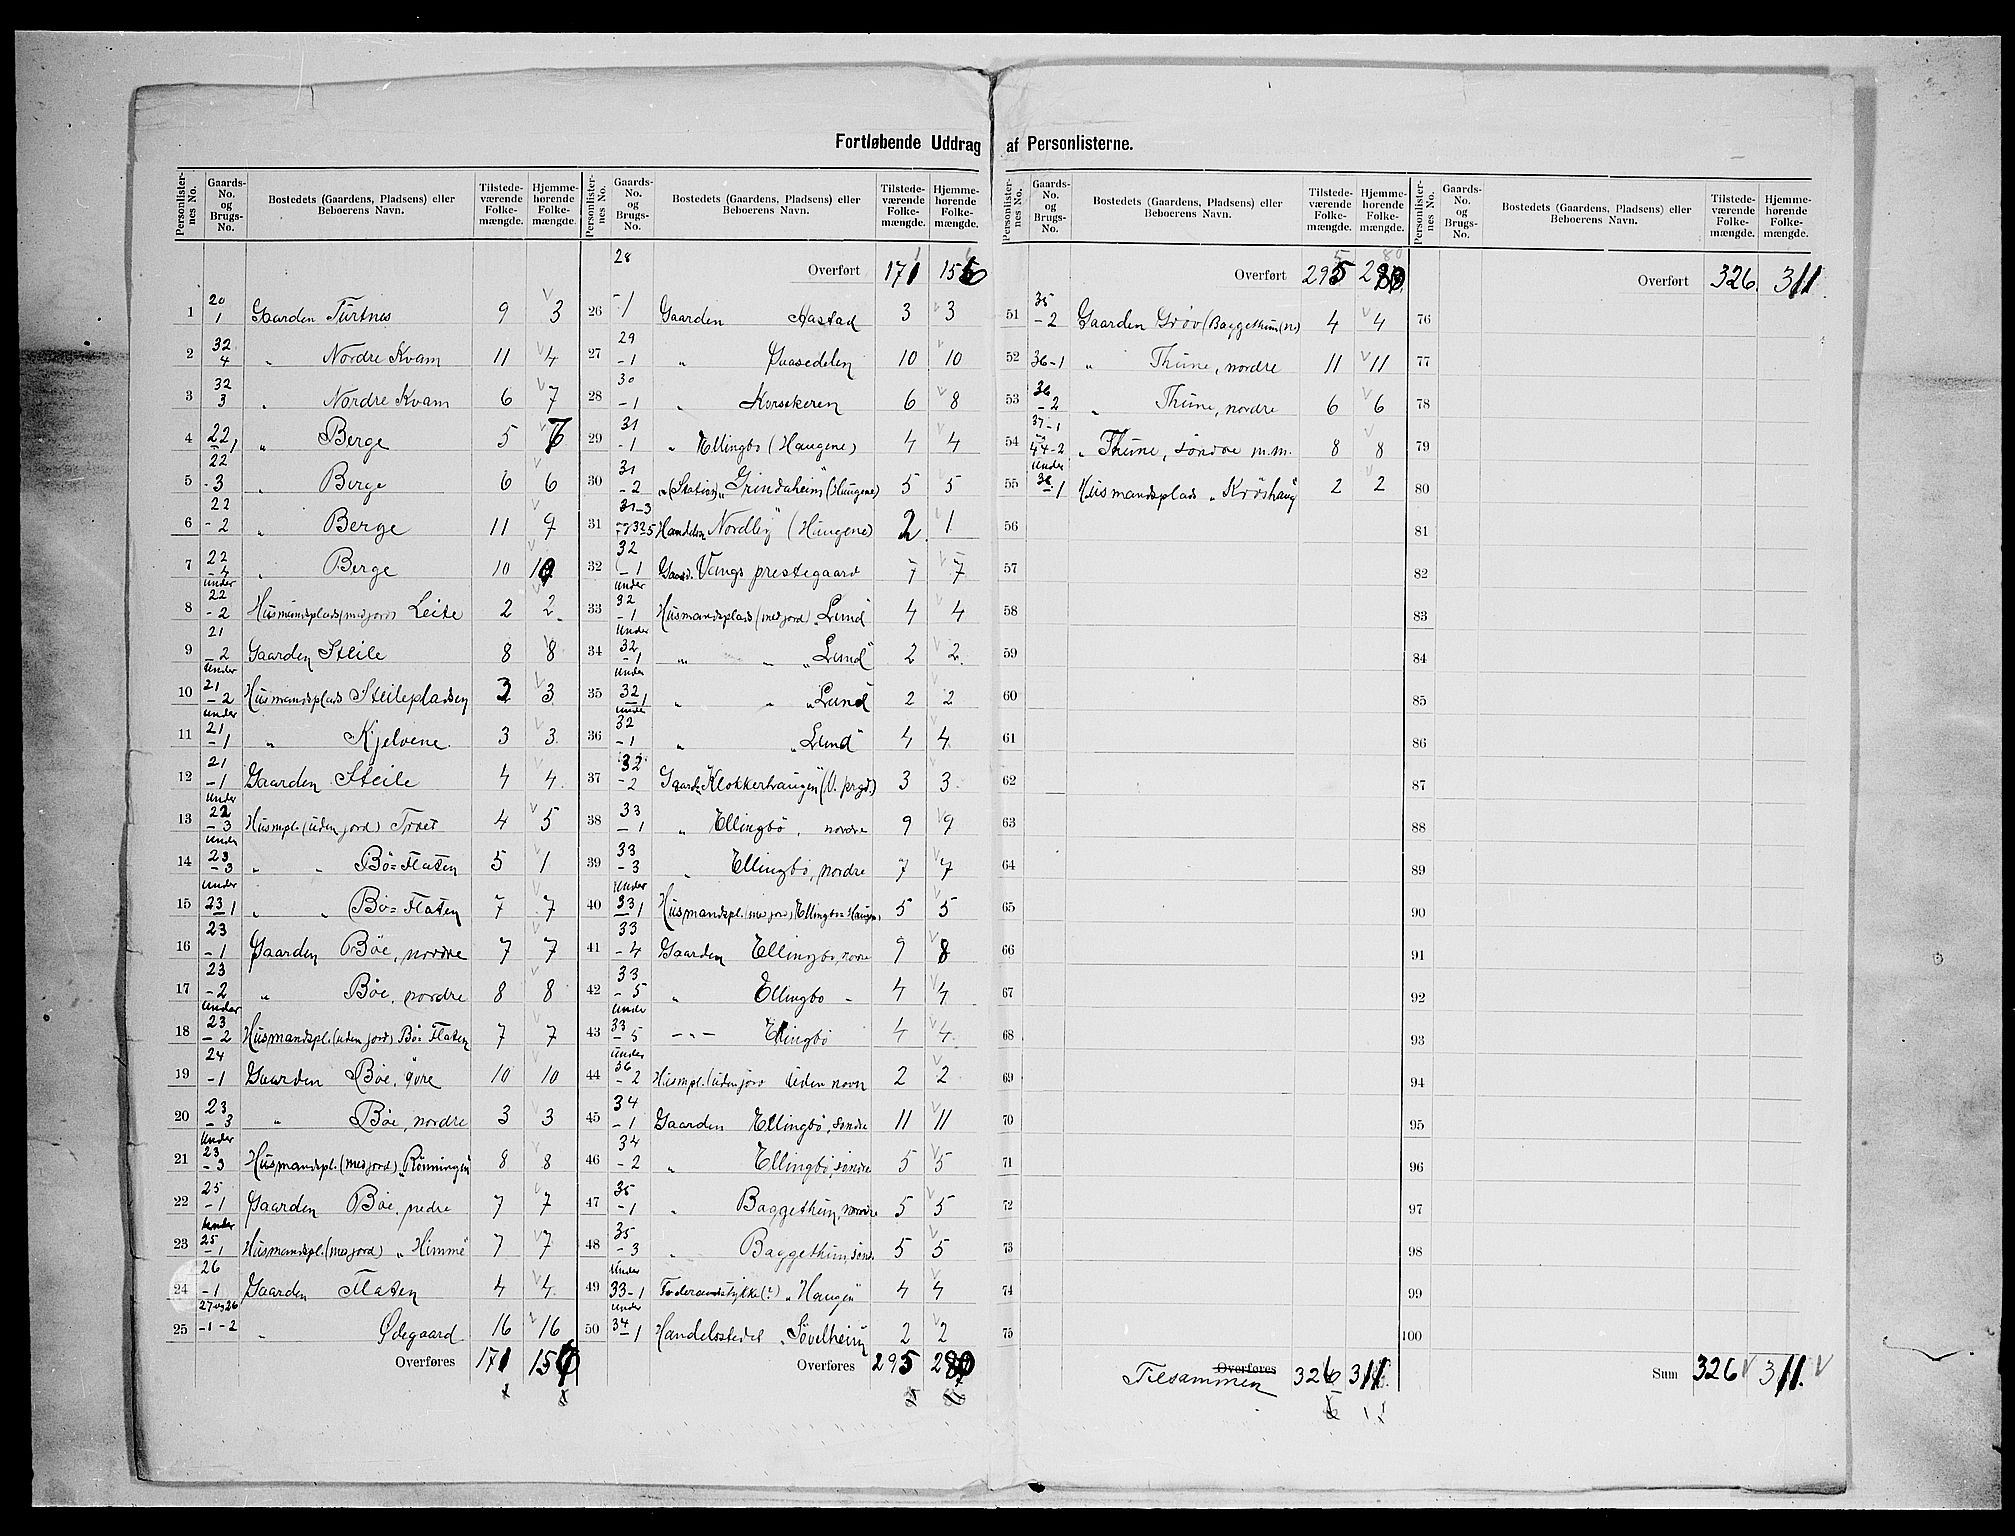 Fortløbende Uddrag af Personlisterne.
Personlister-nes No. | Gaards-No. og Brugs-No. | Bostedets (Gaardens, Pladsens) eller Beboerens Navn. | Tilstede-værende Folke-mængde. | Hjemme-hørende Folke-mængde.
1 | 20 1 | Gaarden Turtnes | 9 | 3
2 | 32 4 | " Nordre Kvam | 11 | 4
3 | 32 3 | " Nordre Kvam | 6 | 7
4 | 22 1 | " Berge | 5
5 | 22 -3 | " Berge | 6 | 6
6 | 22 -2 | " Berge | 11 | 9
7 | 22 -4 | " Berge | 10 | 10
8 | under 22 -2 | Husmandsplads (med jord) Leite | 2 | 2
9 | 21 -2 | Gaarden Steile | 8 | 8
10 | under 21 -2 | Husmandsplads Steilepladsen | 3 | 3
11 | under 21 -1 | " Kjelvene | 3 | 3
12 | 21 -1 | Gaarden Steile | 4 | 4
13 | under 22 -3 | Husmpl. (uden jord) Troet | 4 | 5
14 | under 23 -3 | " " Bø-Flaten | 5 | 1
15 | under 23 1 | " " Bø-Flaten | 7 | 7
16 | 23 -1 | Gaarden Bøe, nordre | 7 | 7
17 | 23 -2 | " Bøe, nordre | 8 | 8
18 | under 23 -2 | Husmandspl. (uden jord) Bø-Flaten | 7 | 7
19 | 24 -1 | Gaarden Bøe, øvre | 10 | 10
20 | 23 -3 | " Bøe, nordre | 3 | 3
21 | under 23 -3 | Husmandspl. (med jord) "Rønningen" | 8 | 8
22 | 25 -1 | Gaarden Bøe, nedre | 7 | 7
23 | under 25 -1 | Husmandspl. (med jord) "Himme" | 7 | 7
24 | 26 -1 | Gaarden Flaten | 4 | 4
25 | 27 og 26 -1 -2 | " Ødegaard | 16 | 16
Overføres | 171 | 156
Personlister-nes No. | Gaards-No. og Brugs-No. | Bostedets (Gaardens, Pladsens) eller Beboerens Navn. | Tilstede-værende Folke-mængde. | Hjemme-hørende Folke-mængde.
28 | Overført | 171 | 156
26 | -1 | Gaarden Hastad | 3 | 3
27 | 29 -1 | " | 10 | 10
28 | 30 -1 | " Korsekeren | 6 | 8
29 | 31 -1 | " Ellingbø (Haugene) | 4 | 4
30 | 31 -2 | " (Station) "Grindaheim" (Haugene) | 5 | 5
31 | 31-3 | "Nordley" (Haugene) | 2 | 1
32 | 32 -1 | Gaard. Vangs prestegaard | 7 | 7
33 | under 32 -1 | Husmandsplads (med jord) "Lund" | 4 | 4
34 | under 32 -1 | " " "Lund" | 2 | 2
35 | under 32 1 | " " "Lund" | 2 | 2
36 | under 32 -1 | " "Lund" | 4 | 4
37 | 32 -2 | Gaard. "Klokkerhaugen" (V. prgd.) | 3 | 3
38 | 33 -1 | " Ellingbø, nordre | 9 | 9
39 | 33 -3 | " Ellingbø, nordre | 7 | 7
40 | under 33 1 | Husmandspl. (med jord) Ellingbø-Haugen | 5 | 5
41 | 33 -4 | Gaarden Ellingbø, nordre | 9 | 8
42 | 33 -5 | " Ellingbø - | 4 | 4
43 | under 33 -5 | -"- Ellingbø | 4 | 4
44 | under 36 -2 | Husmpl. (uden jord uden navn | 2 | 2
45 | 34 -1 | Gaarden Ellingbø, søndre | 11 | 11
46 | 34 -2 | " Ellingbø, søndre | 5 | 5
47 | 35 -1 | " Baggethun, nordre | 5 | 5
48 | 35 -3 | " Baggethun, sønd. | 5 | 5
49 | under 33-1 | Føderaadsstykke (?) "Haugen" | 4 | 4
50 | under 34 -1 | Handelsstedet "Søvelheim" | 2 | 2
Overføres | 295 | 280
Personlister-nes No. | Gaards-No. og Brugs-No. | Bostedets (Gaardens, Pladsens) eller Beboerens Navn. | Tilstede-værende Folke-mængde. | Hjemme-hørende Folke-mængde.
Overført | 295 | 280
51 | 35 -2 | Gaarden Grøv (Baggethun (n) | 4 | 4
52 | 36-1 | " Thune, nordre | 11 | 11
53 | 36 -2 | " Thune, nordre | 6 | 6
54 | 37-1 44-2 | " Thune, søndre m.m. | 8 | 8
55 | under 36 1 | Husmandsplads "Krøshaug" | 2 | 2
56
57
58
59
60
61
62
63
64
65
66
67
68
69
70
71
72
73
74
75
Overføres
Tilsammen | 326 | 311
Personlister-nes No. | Gaards-No. og Brugs-No. | Bostedets (Gaardens, Pladsens) eller Beboerens Navn. | Tilstede-værende Folke-mængde. | Hjemme-hørende Folke-mængde.
Overført | 326 | 311
76
77
78
79
80
81
82
83
84
85
86
87
88
89
90
91
92
93
94
95
96
97
98
99
100
Sum | 326 | 311.